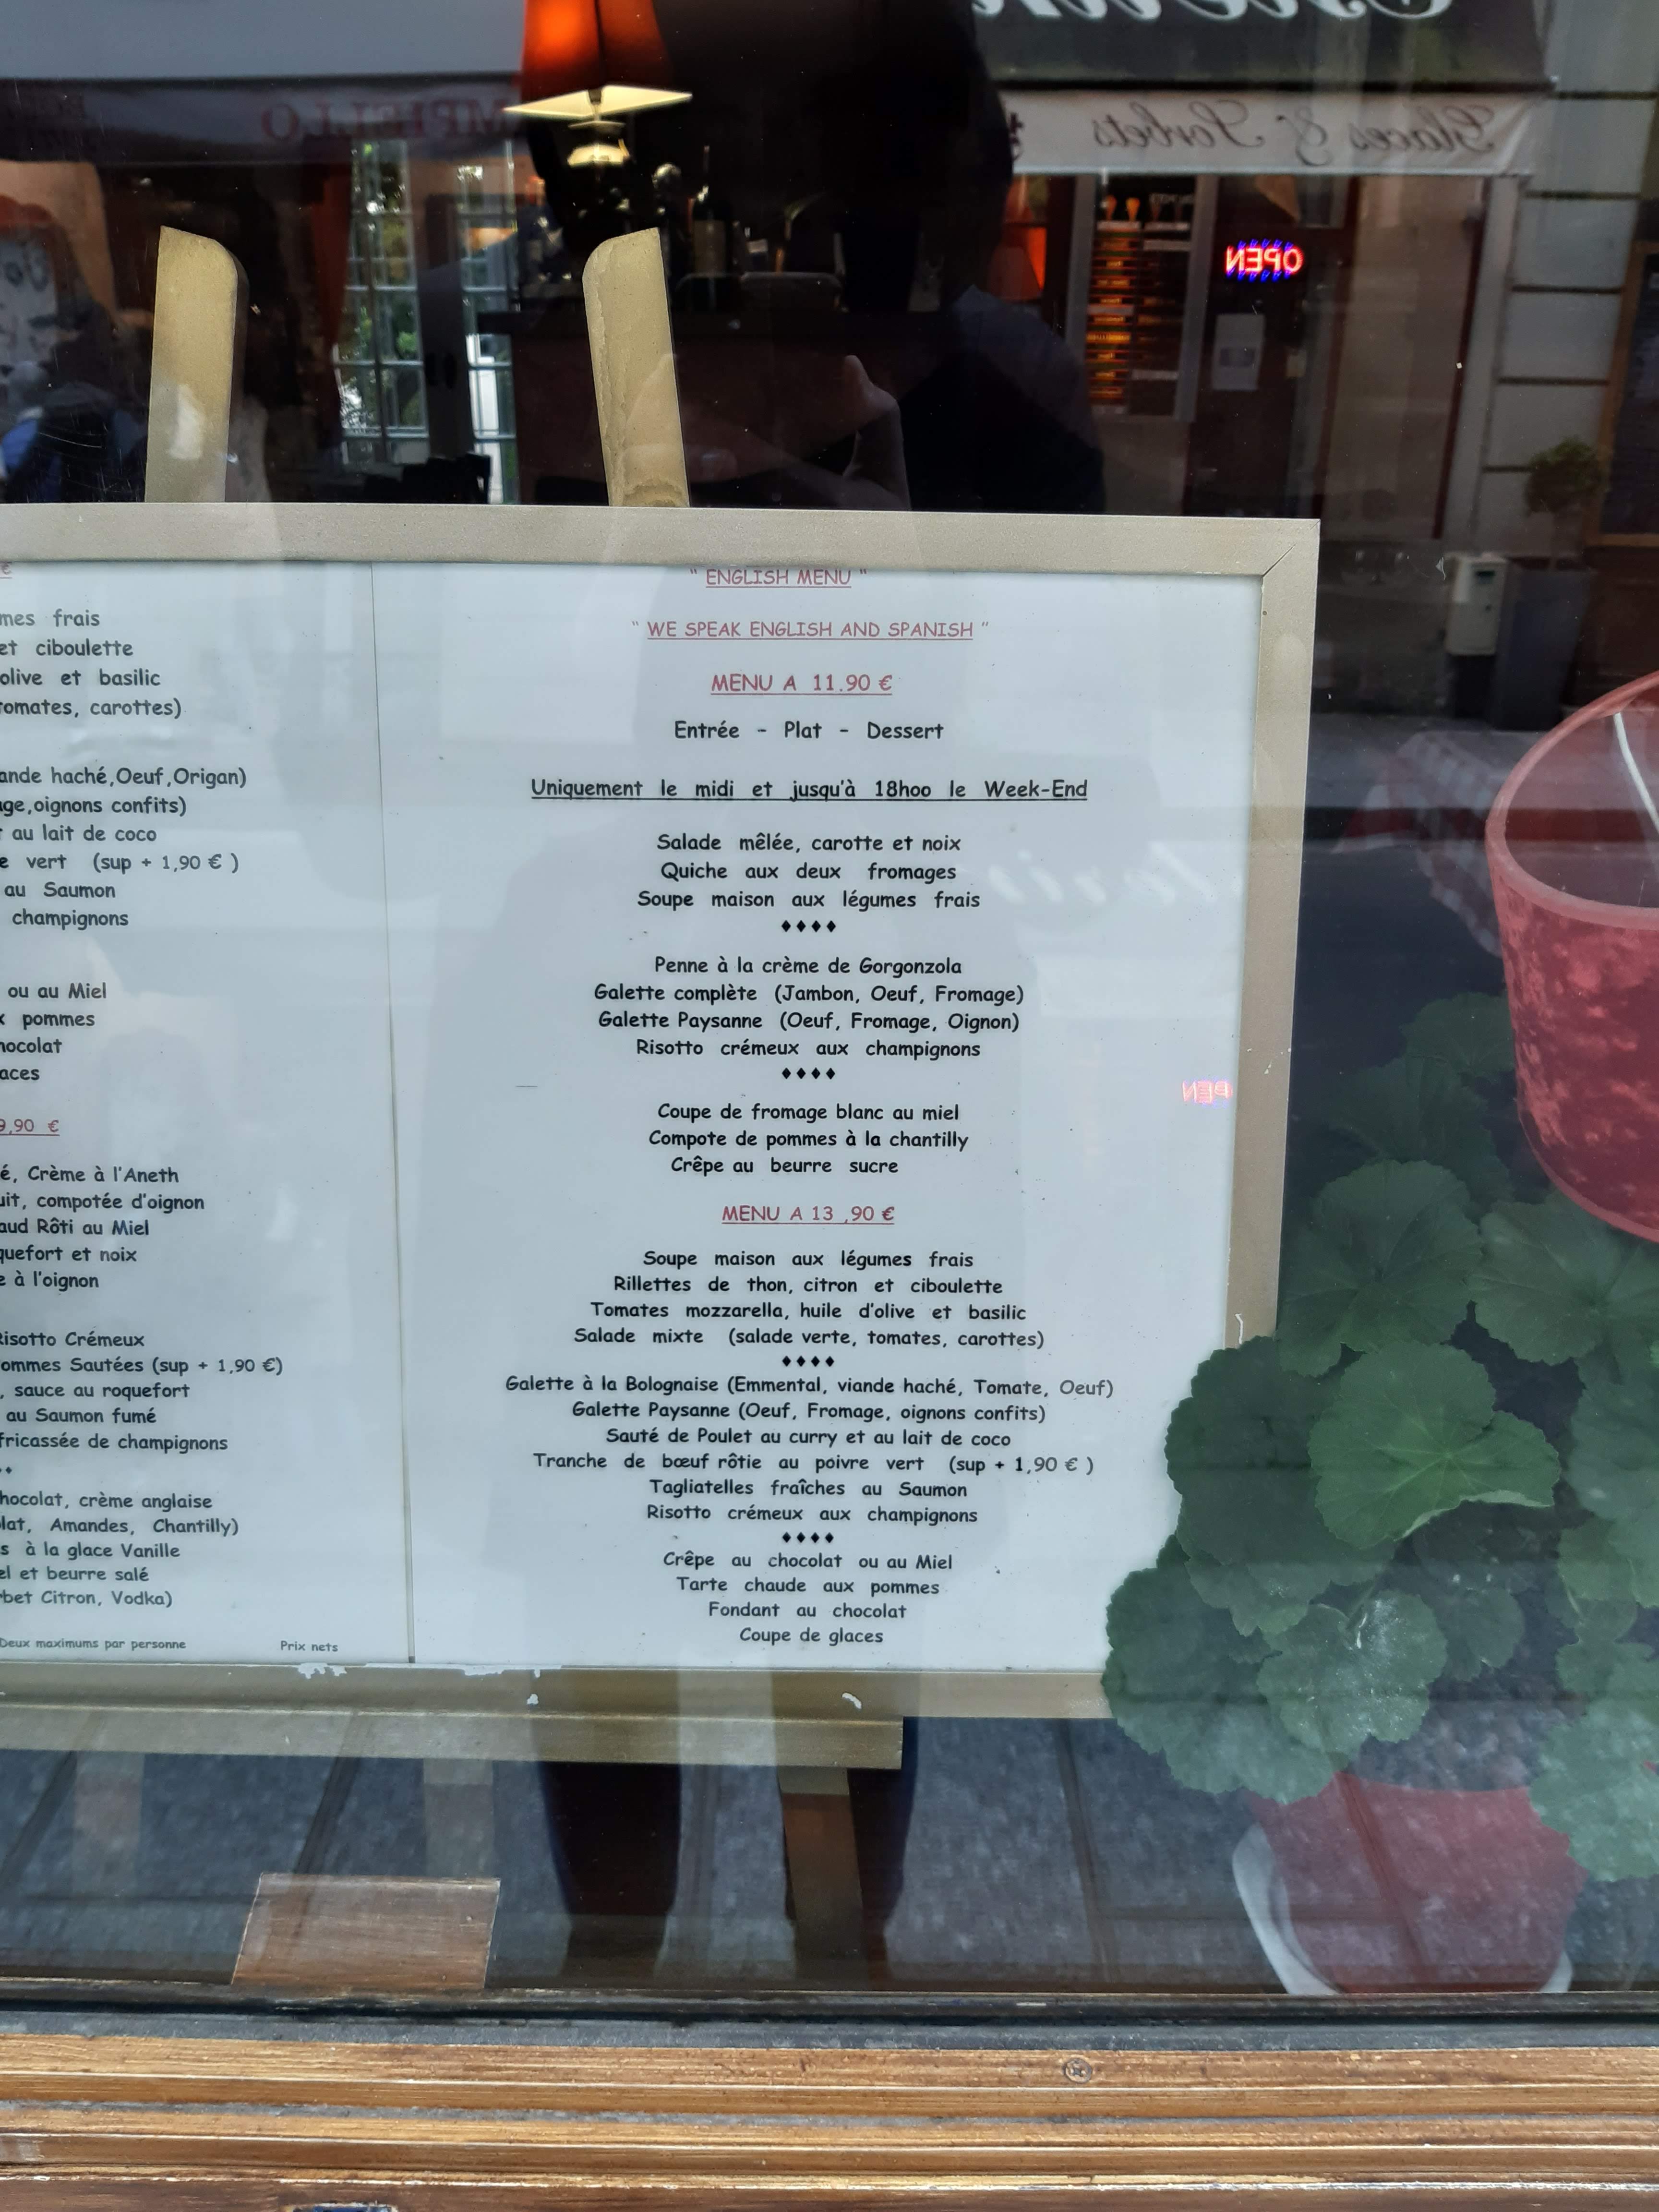 MPIELLO
Glaces & Sorbets
OPEN
€
mes frais
et ciboulette
olive et basilic
tomates, carottes)
ande haché,Oeuf,Origan)
age,oignons confits)
au lait de coco
e vert (sup + 1,90 € )
au Saumon
champignons
ou au Miel
x pommes
hocolat
aces
9,90 €
é, Crème à l'Aneth
uit, compotée d'oignon
aud Rôti au Miel
quefort et noix
e à l'oignon
Risotto Crémeux
ommes Sautées (sup + 1,90 €)
, sauce au roquefort
au Saumon fumé
fricassée de champignons
hocolat, crème anglaise
lat, Amandes, Chantilly)
s à la glace Vanille
el et beurre salé
rbet Citron, Vodka)
Deux maximums par personne Prix nets
" ENGLISH MENU "
" WE SPEAK ENGLISH AND SPANISH "
MENU A 11.90 €
Entrée - Plat - Dessert
Uniquement le midi et jusqu'à 18hoo le Week-End
Salade mêlée, carotte et noix
Quiche aux deux fromages
Soupe maison aux légumes frais
♦♦♦♦
Penne à la crème de Gorgonzola
Galette complète (Jambon, Oeuf, Fromage)
Galette Paysanne (Oeuf, Fromage, Oignon)
Risotto crémeux aux champignons
♦♦♦♦
Coupe de fromage blanc au miel
Compote de pommes à la chantilly
Crêpe au beurre sucre
MENU A 13 ,90 €
Soupe maison aux légumes frais
Rillettes de thon, citron et ciboulette
Tomates mozzarella, huile d'olive et basilic
Salade mixte (salade verte, tomates, carottes)
♦♦♦♦
Galette à la Bolognaise (Emmental, viande haché, Tomate, Oeuf)
Galette Paysanne (Oeuf, Fromage, oignons confits)
Sauté de Poulet au curry et au lait de coco
Tranche de bœuf rôtie au poivre vert (sup + 1,90 € )
Tagliatelles fraîches au Saumon
Risotto crémeux aux champignons
♦♦♦♦
Crêpe au chocolat ou au Miel
Tarte chaude aux pommes
Fondant au chocolat
Coupe de glaces